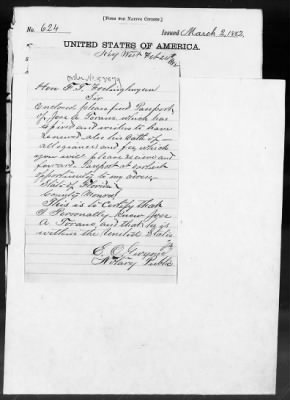 [FORM FOR NATIVE CITIZEN.]
No. 624 Issued March 2, 1882.
UNITED STATES OF AMERICA.
Key West Feb
Hon F. T. Frelinghuysen
Sir
Enclosed please find Passport
of Jose A Torano which has
expired and wishes to have
renewed also his Oath of
allegiance and fee which
you will please receive and
forward Passport at earliest
opportunity to my
State of Florida
County Monroe
This is to Certify that
I Personally Know Jose
A Torano and that he is
within the United States
Notary Public